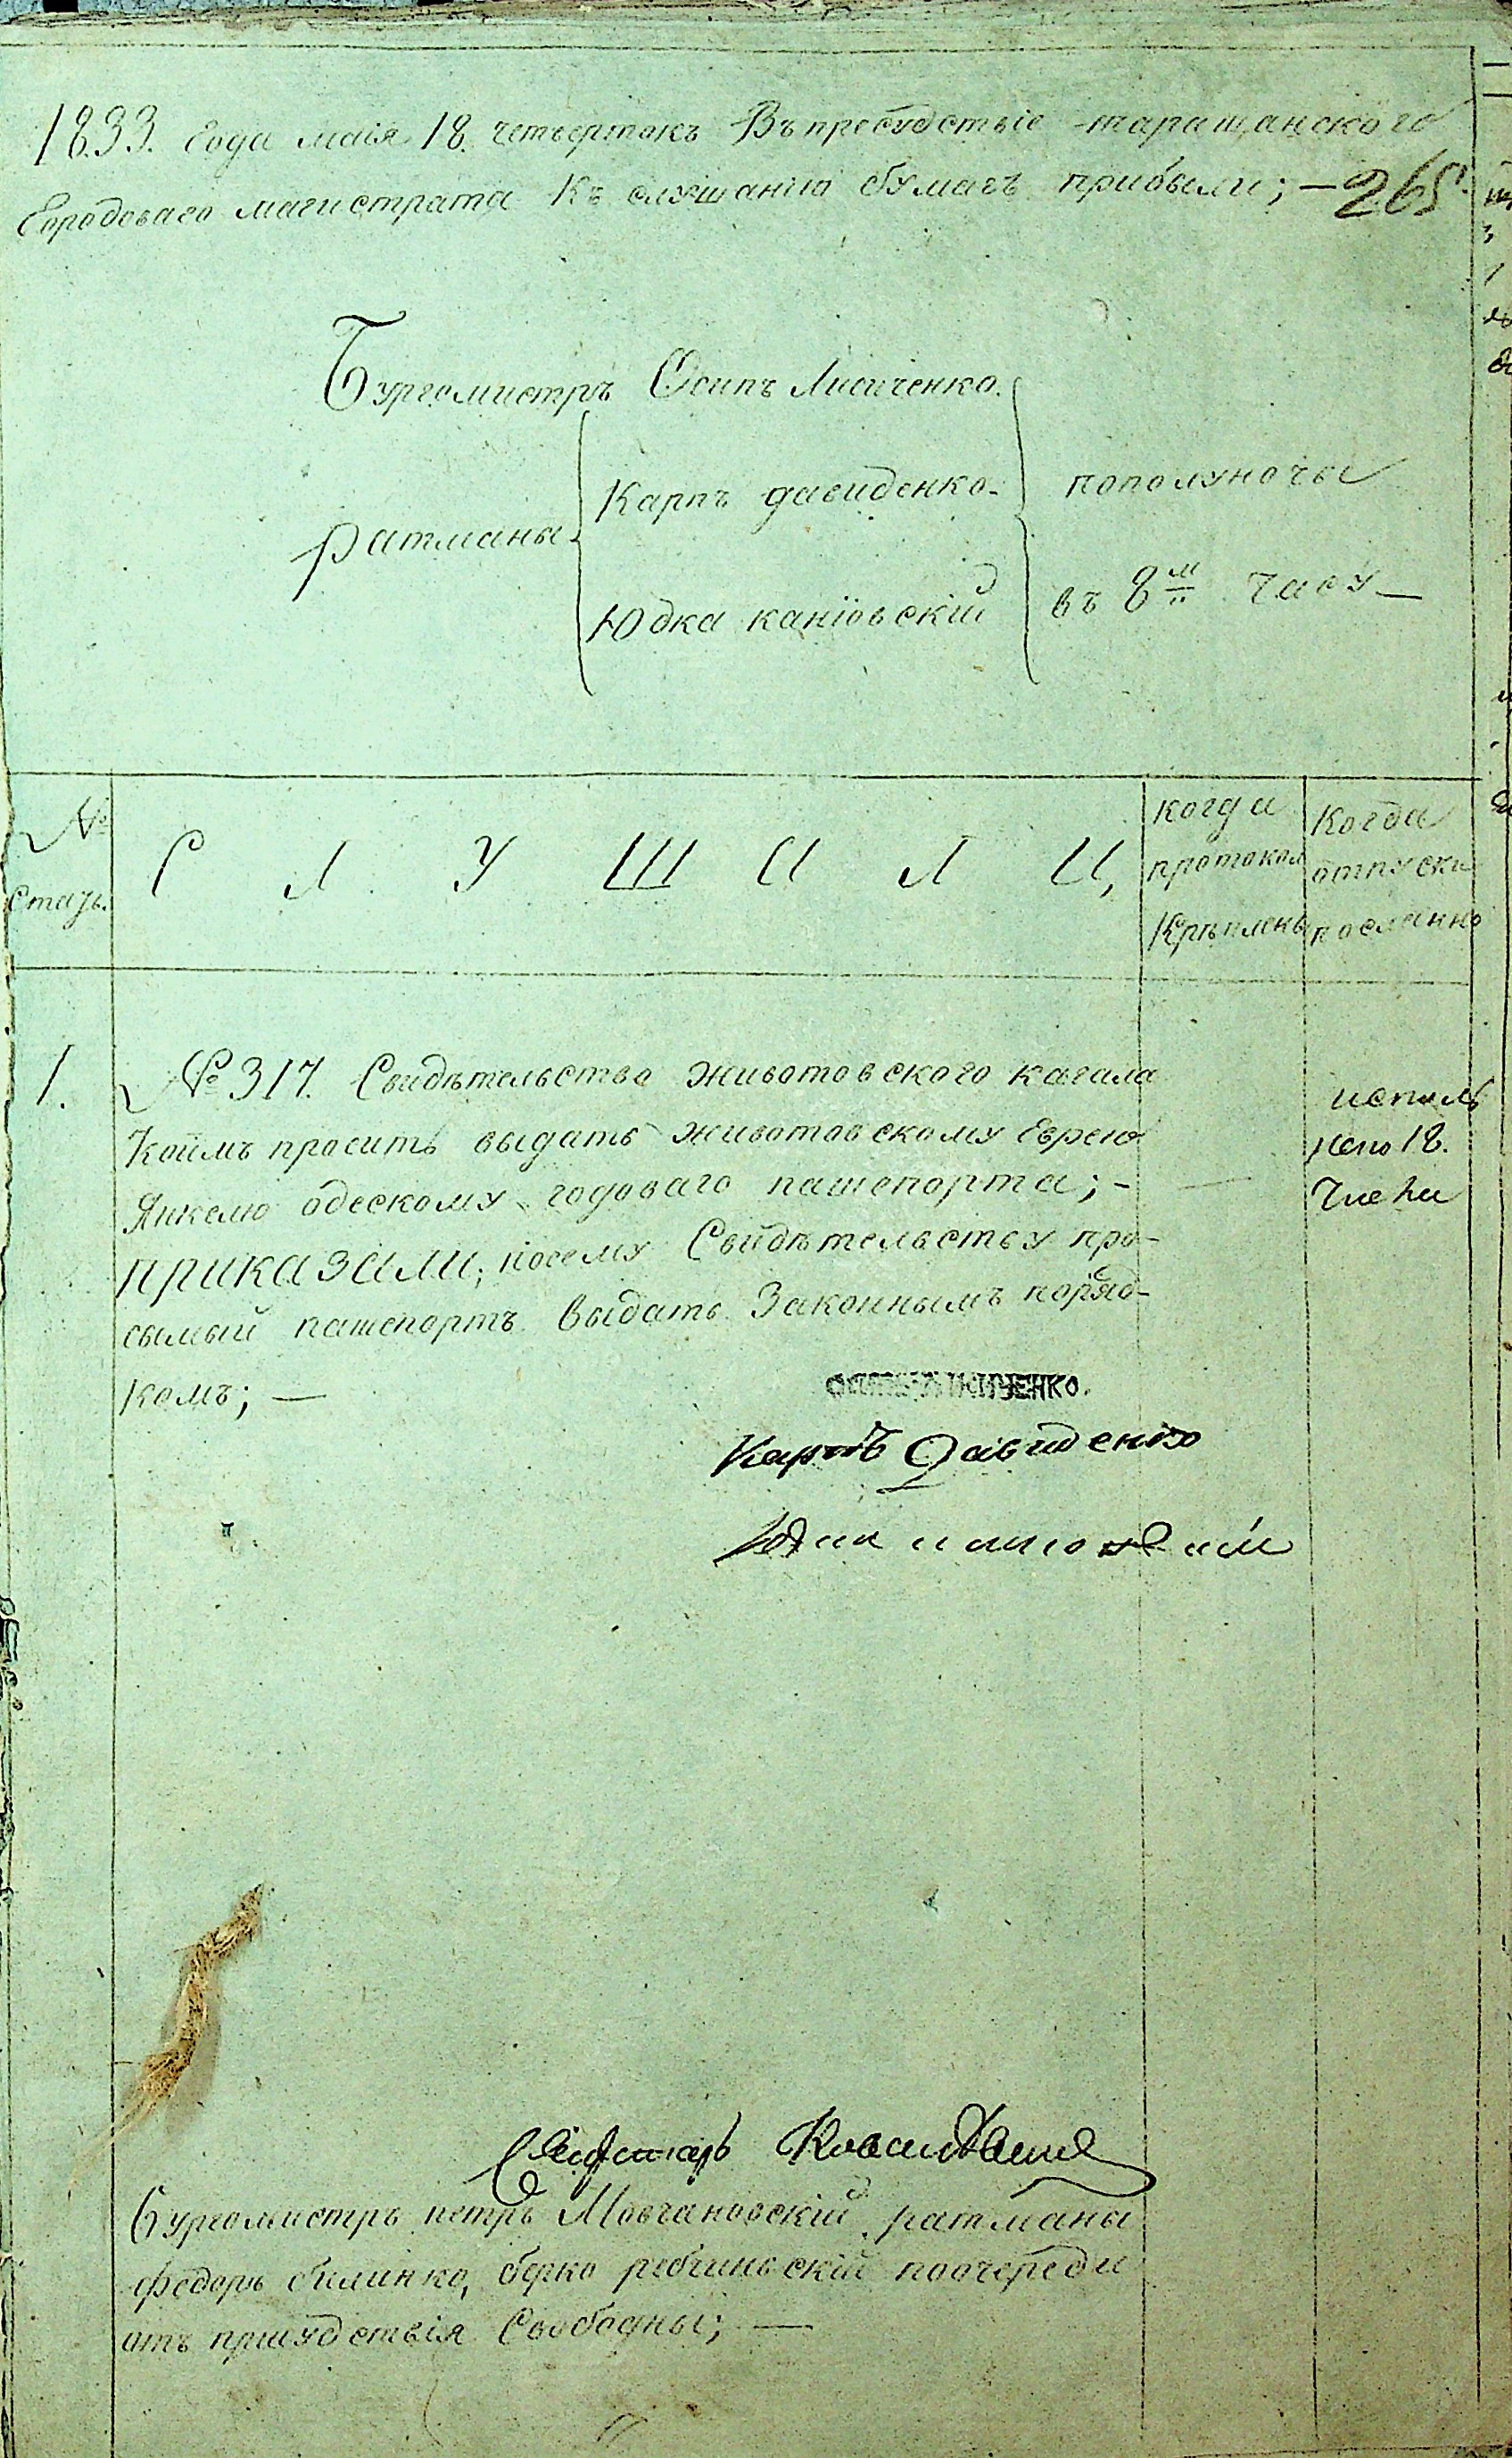 1833. Года маія 18. четвертокъ Въ пресудствіе таращанского
Городоваго магистрата Къ слушанію бумагъ прибыли; — 265.
Бургомистръ Осипъ Лисиченко.
ратманы
Карпъ давиденко.
Юдка каніовскій
пополуночы
въ 8м часу —
№ статъ.
С Л У Ш А Л И,
когда протокол Крѣплены
Когда отпуски посланно
1.
№ 317. Свидѣтельство животовского кагала
Коимъ просить выдать животовскому Еврею
Янкелю одескому годоваго пашепорта; —
приказали; посему Свидѣтельству про-
сымый пашепортъ выдать Законнымъ поряд-
комъ; —
исполь
нено 18.
Числа
Лисиченко.
Карпъ Давиденко
Юдка каніовскій
Секретарь
Бургомистръ петръ Мовчановскій, ратманы
федоръ билинко, берко ребчиньскій поочереди
отъ присудствія Свободны; —